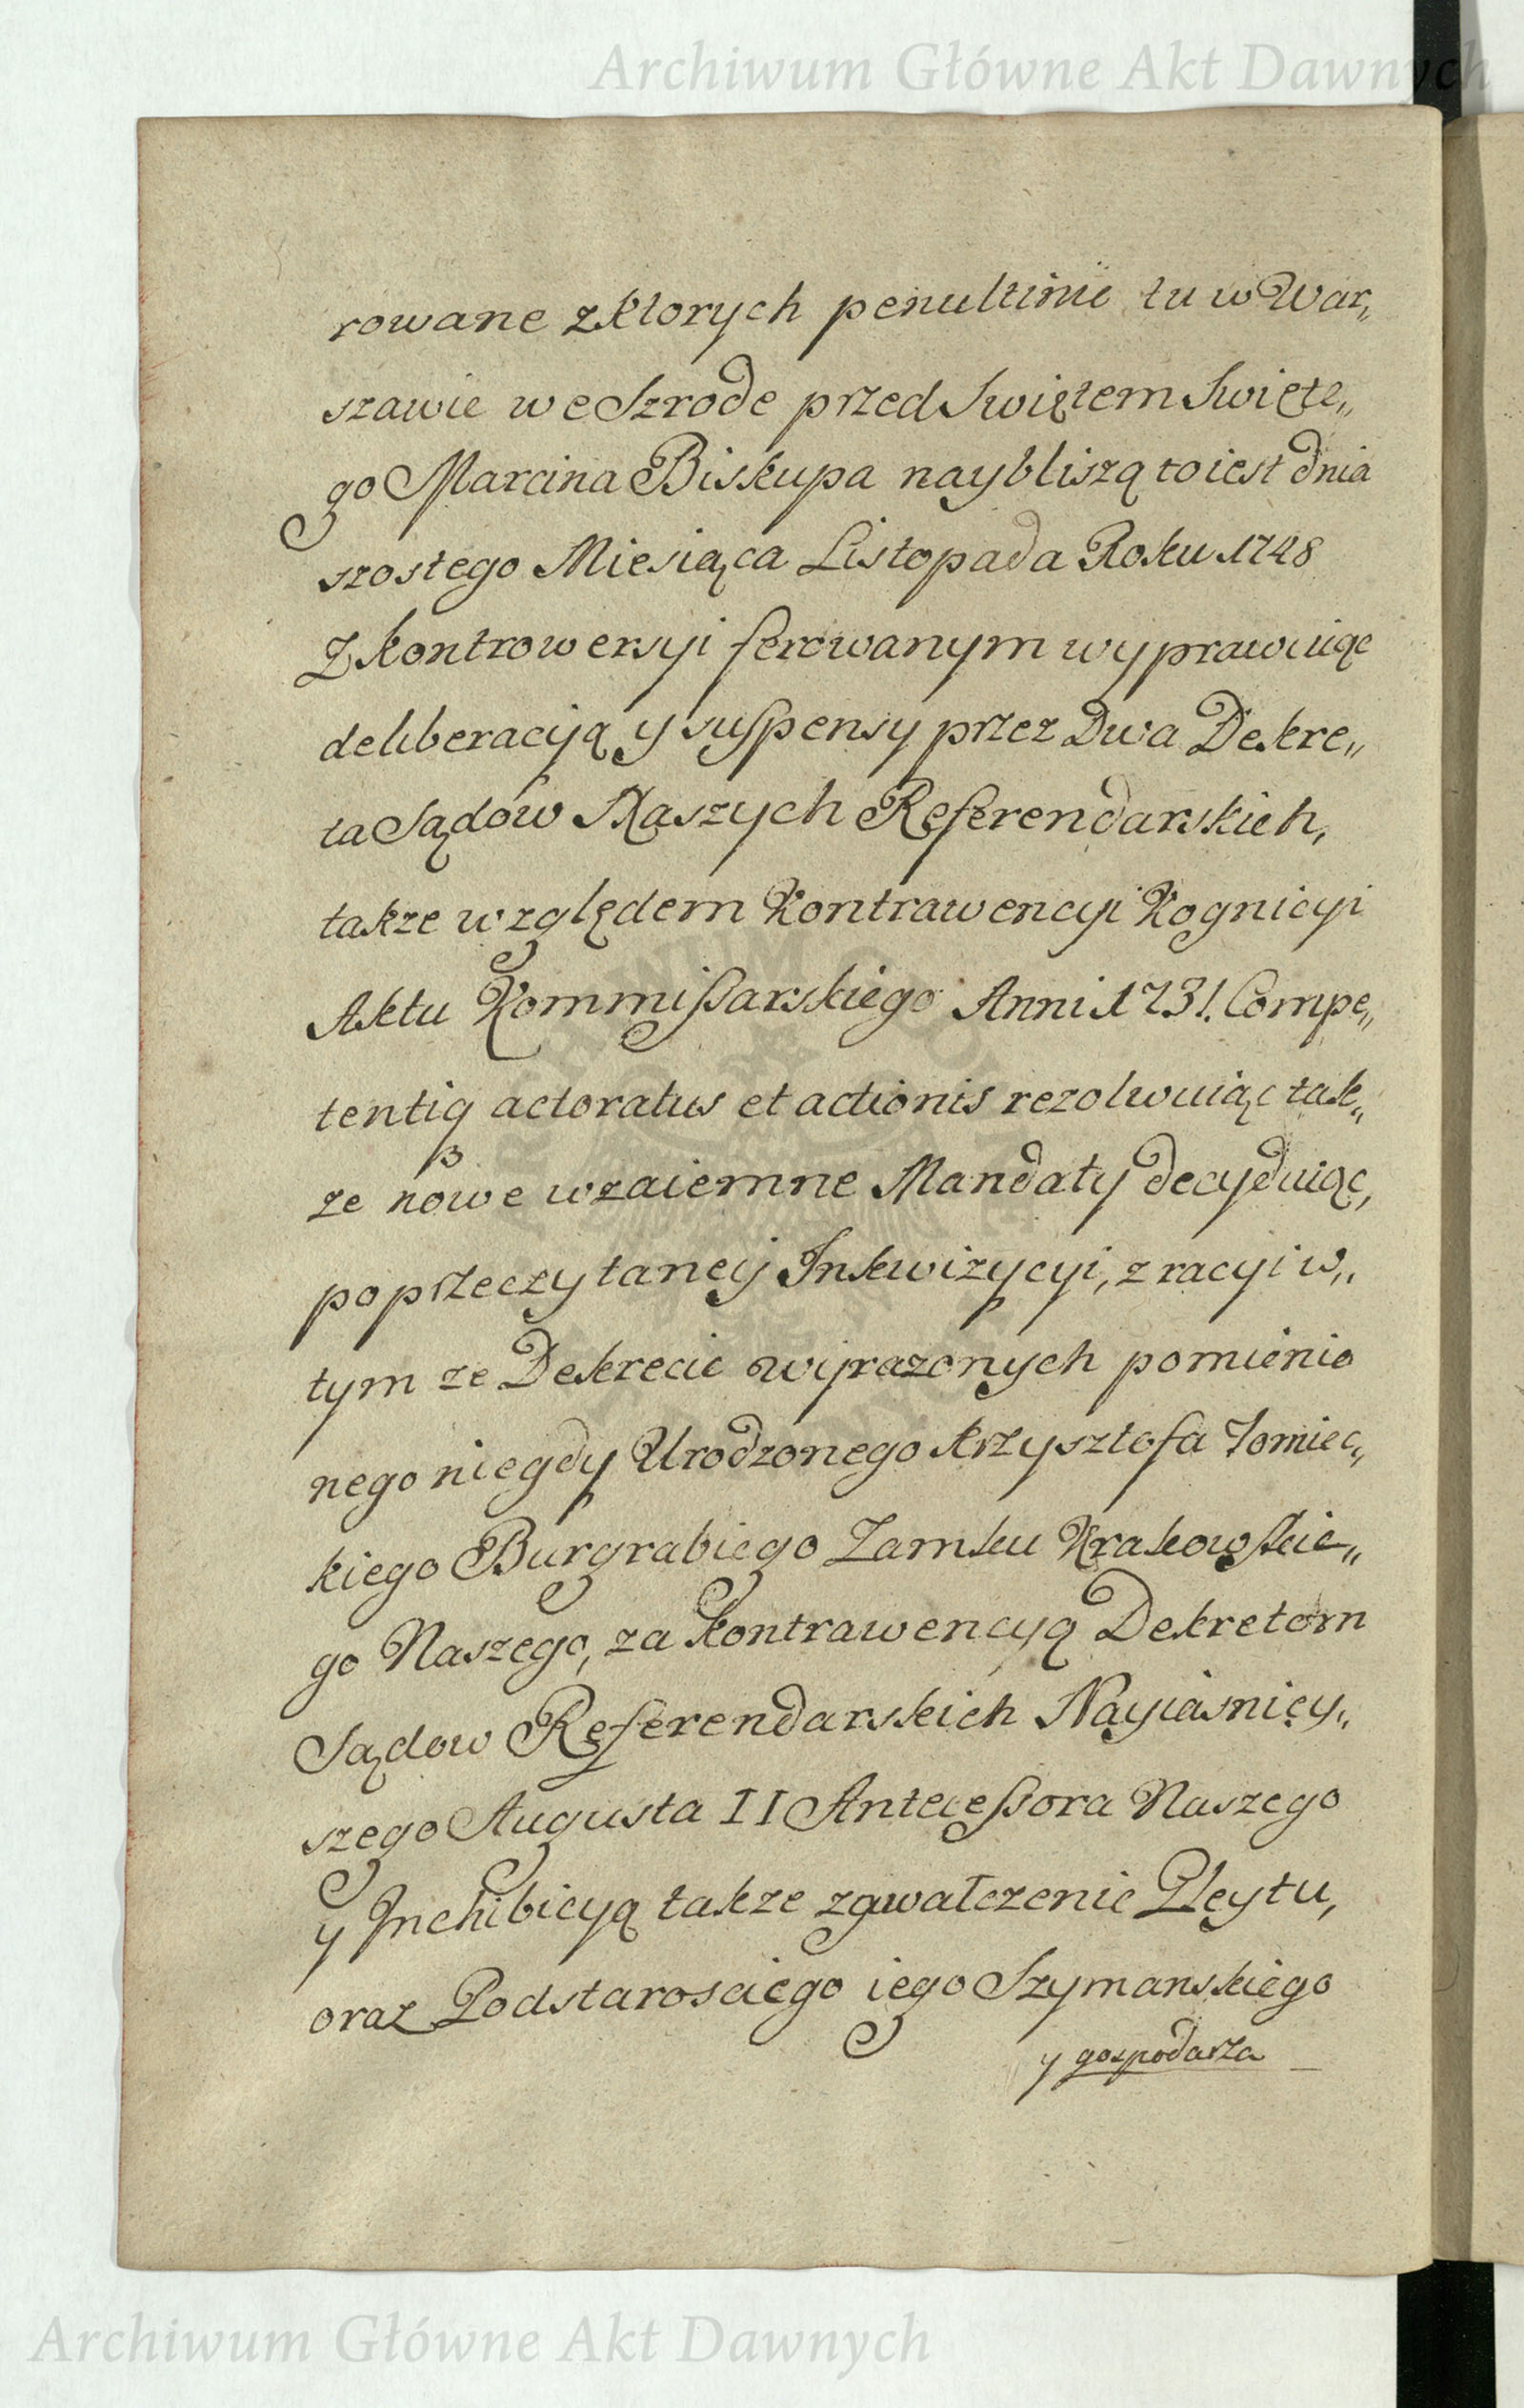 Archiwum Główne Akt Dawnych
rowane z ktorych penultime tu w War„
szawie we Szrode przed Swiętem Swięte„
go Marcina Biskupa naybliszą to iest dnia
szostego Miesiąca Listopada Roku 1748
Z kontrowersyi ferowanym wyprawuiąc
deliberacyją y suspensy przez Dwa Dekre„
ta Sądow Naszych Referendarskich,
takze względem Kontrawencyi Kognicyi
Aktu Kommißarskiego Anni 1731. Compe„
tentią actoratus et actionis rezolwuiąc tak„
ze nowe wzaiemne Mandaty decyduiąc,
po przeczytaney Inkwizycyi, z racyi w„
tym ze Dekrecie wyrazonych pomienio
nego niegdy Urodzonego Krzysztofa Łomiec„
kiego Burgrabiego Zamku Krakowskie„
go Naszego, za Kontrawencyą Dekretom
Sądow Referendarskich Nayiasniey„
szego Augusta II Anteceßora Naszego
y Inchibicyą takze zgwałczenie Gleytu,
oraz Podstarosciego iego Szymanskiego
y gospodarza
Archiwum Główne Akt Dawnych